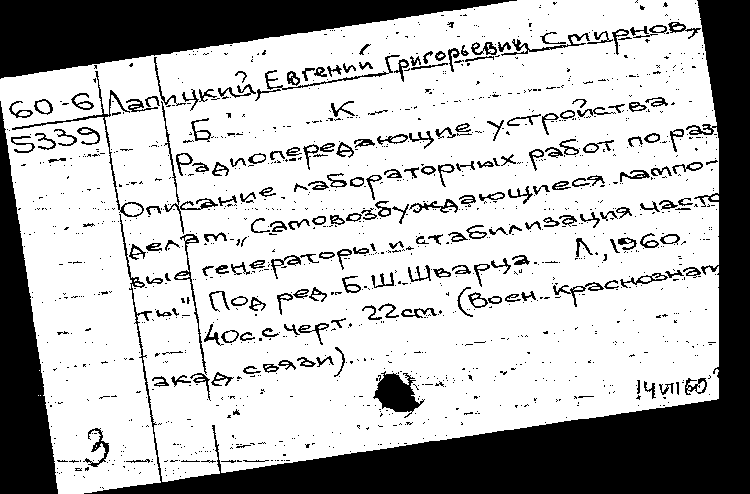 60-6 Лапицкий, Евгений Григорьевич, Смирнов,
5339 Б К
Радиопередающие устройства.
Описание лабораторных работ по раз-
делам „Самовозбуждающиеся лампо-
вые генераторы и стабилизация часто
ты" Под ред. Б.Ш.Шварца. Л., 1960.
40с. с черт. 22ст. (Воен. краснознам
акад. связи).
14 VII 60
3